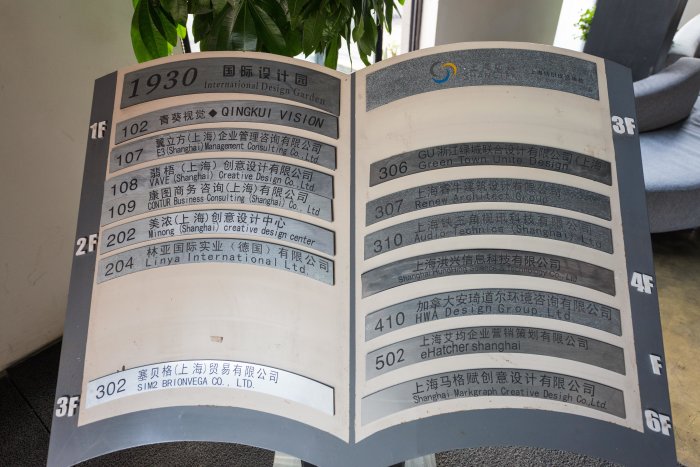 1930 国际设计园
International Design Garden
1F
102 青葵视觉◆QINGKUI VISION
107 翼立方(上海)企业管理咨询有限公司
E3(Shanghai)Management Consulting Co.,Ltd
108 (上海)创意设计有限公司
VAVE (Shanghai) Creative Design Co.,Ltd
109 康图商务咨询(上海)有限公司
CONTUR Business Consulting (Shanghai) Co.,Ltd
2F
202 美浓(上海)创意设计中心
Minong (Shanghai) creative design center
204 林亚国际实业(德国)有限公司
Linya International Ltd.
3F
302 塞贝格(上海)贸易有限公司
SIM2 BRIONVEGA CO., LTD.
3F
306 GU浙江绿城联合设计有限公司(上海)
Green Town Unite Design
307 上海睿牛建筑设计有限公司
Renew Architect Group
310 上海视讯科技有限公司
Audio-Technics (Shanghai) Co.,Ltd
4F
上海洪兴信息科技有限公司
410 加拿大安琦道尔环境咨询有限公司
HWA Design Group,Ltd
F
502 上海艾均企业营销策划有限公司
eHatcher shanghai
6F
上海马格赋创意设计有限公司
Shanghai Markgraph Creative Design Co.,Ltd.